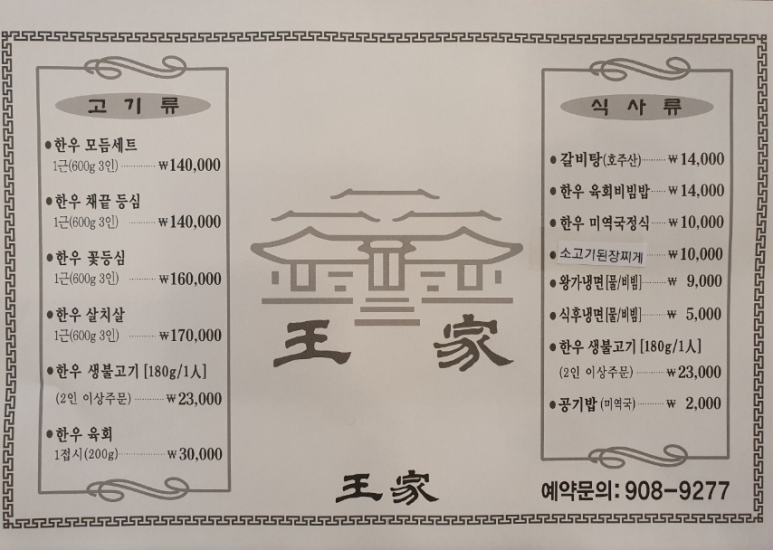 고 기 류
●한우 모듬세트
1근(600g 3인) ············ ₩140,000
●한우 채끝 등심
1근(600g 3인) ········· ₩140,000
●한우 꽃등심
1근(600g 3인) ········· ₩160,000
●한우 살치살
1근(600g 3인) ············ ₩170,000
●한우 생불고기 [180g/1人]
(2인 이상주문) ·········· ₩23,000
●한우 육회
1접시(200g) ············· ₩30,000
王 家
王家
식 사 류
●갈비탕(호주산) ········ ₩14,000
●한우 육회비빔밥 ····· ₩14,000
●한우 미역국정식 ····· ₩10,000
●소고기된장찌게 ······ ₩10,000
●왕가냉면[물/비빔] ······· ₩ 9,000
●식후냉면[물/비빔] ······· ₩ 5,000
●한우 생불고기 [180g/1人]
(2인 이상주문) ·········· ₩23,000
●공기밥 (미역국) ········· ₩ 2,000
예약문의: 908-9277